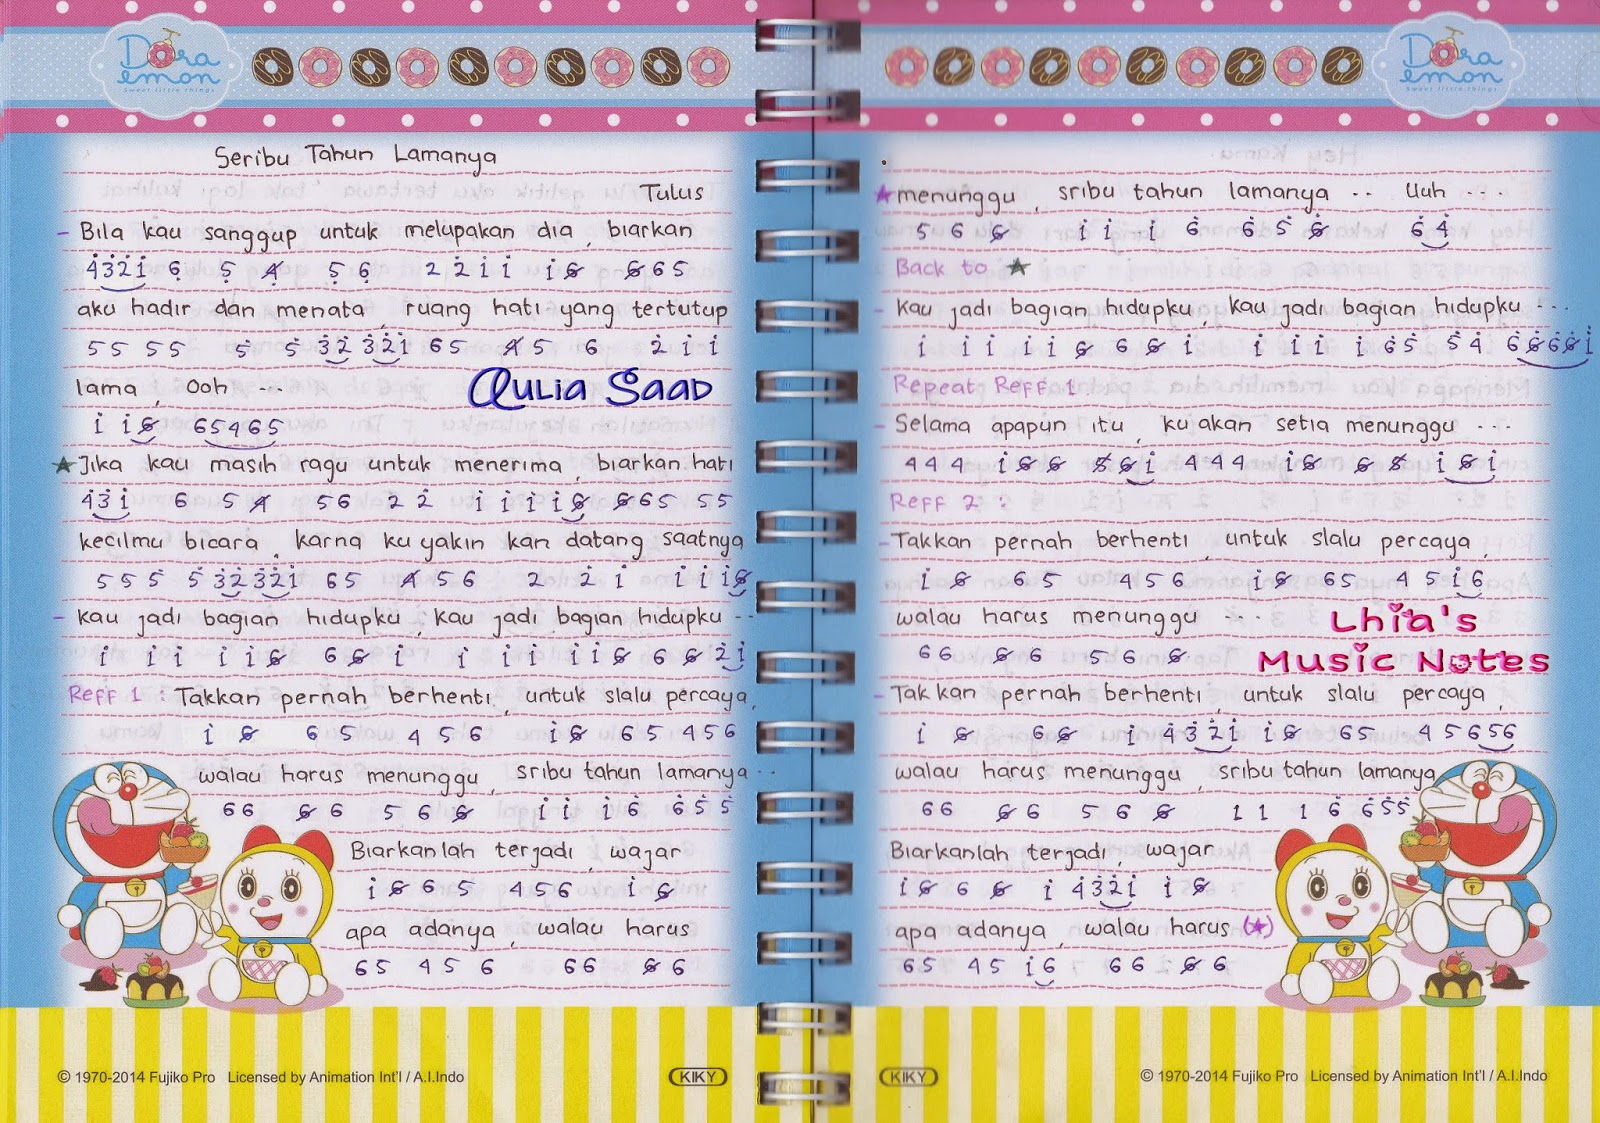 Dora emon
Sweet little things
Seribu Tahun Lamanya
Tulus
- Bila kau sanggup untuk melupakan dia, biarkan
4321 6 5 4 56 2211 16 665
aku hadir dan menata, ruang hati yang tertutup
55 55 5 5 32 321 65 45 6 2 1 1
lama, Ooh ...
1 16 65465
Aulia Saad
★ Jika kau masih ragu untuk menerima, biarkan hati
431 6 54 56 22 11116 665 55
kecilmu bicara, karna ku yakin kan datang saatnya
555 532321 65 456 2 21 1116
- kau jadi bagian hidupku, kau jadi bagian hidupku ...
1 11 116 661 1 111 116 6621
Reff 1 : Takkan pernah berhenti, untuk slalu percaya,
1 6 65 456 16 65 456
walau harus menunggu, sribu tahun lamanya ...
66 66 566 11 16 655
Biarkanlah terjadi, wajar
1665 456 16
apa adanya, walau harus
65 456 66 66
© 1970-2014 Fujiko Pro Licensed by Animation Int'l / A.I.Indo
KIKY
Dora emon
Sweet little things
★ menunggu, sribu tahun lamanya .. Uuh ...
5 6 6 1 1 1 6 6 5 6 64
Back to ★
- Kau jadi bagian hidupku, kau jadi bagian hidupku ...
1 11 116 661 1 11 165 54 66661
Repeat Reff 1
- Selama apapun itu, ku akan setia menunggu ...
444 166 561 444 16 65 161
Reff 2 :
- Takkan pernah berhenti, untuk slalu percaya,
1 6 65 456 16 65 4516
walau harus menunggu ...
66 66 566
Lhia's
Music Notes
- Takkan pernah berhenti, untuk slalu percaya,
1 6 66 14321 16 65 45656
walau harus menunggu, sribu tahun lamanya
66 66 566 11 16 655
Biarkanlah terjadi, wajar
1666 14321 16
apa adanya, walau harus (★)
65 4516 66 66
KIKY
© 1970-2014 Fujiko Pro Licensed by Animation Int'l / A.I.Indo